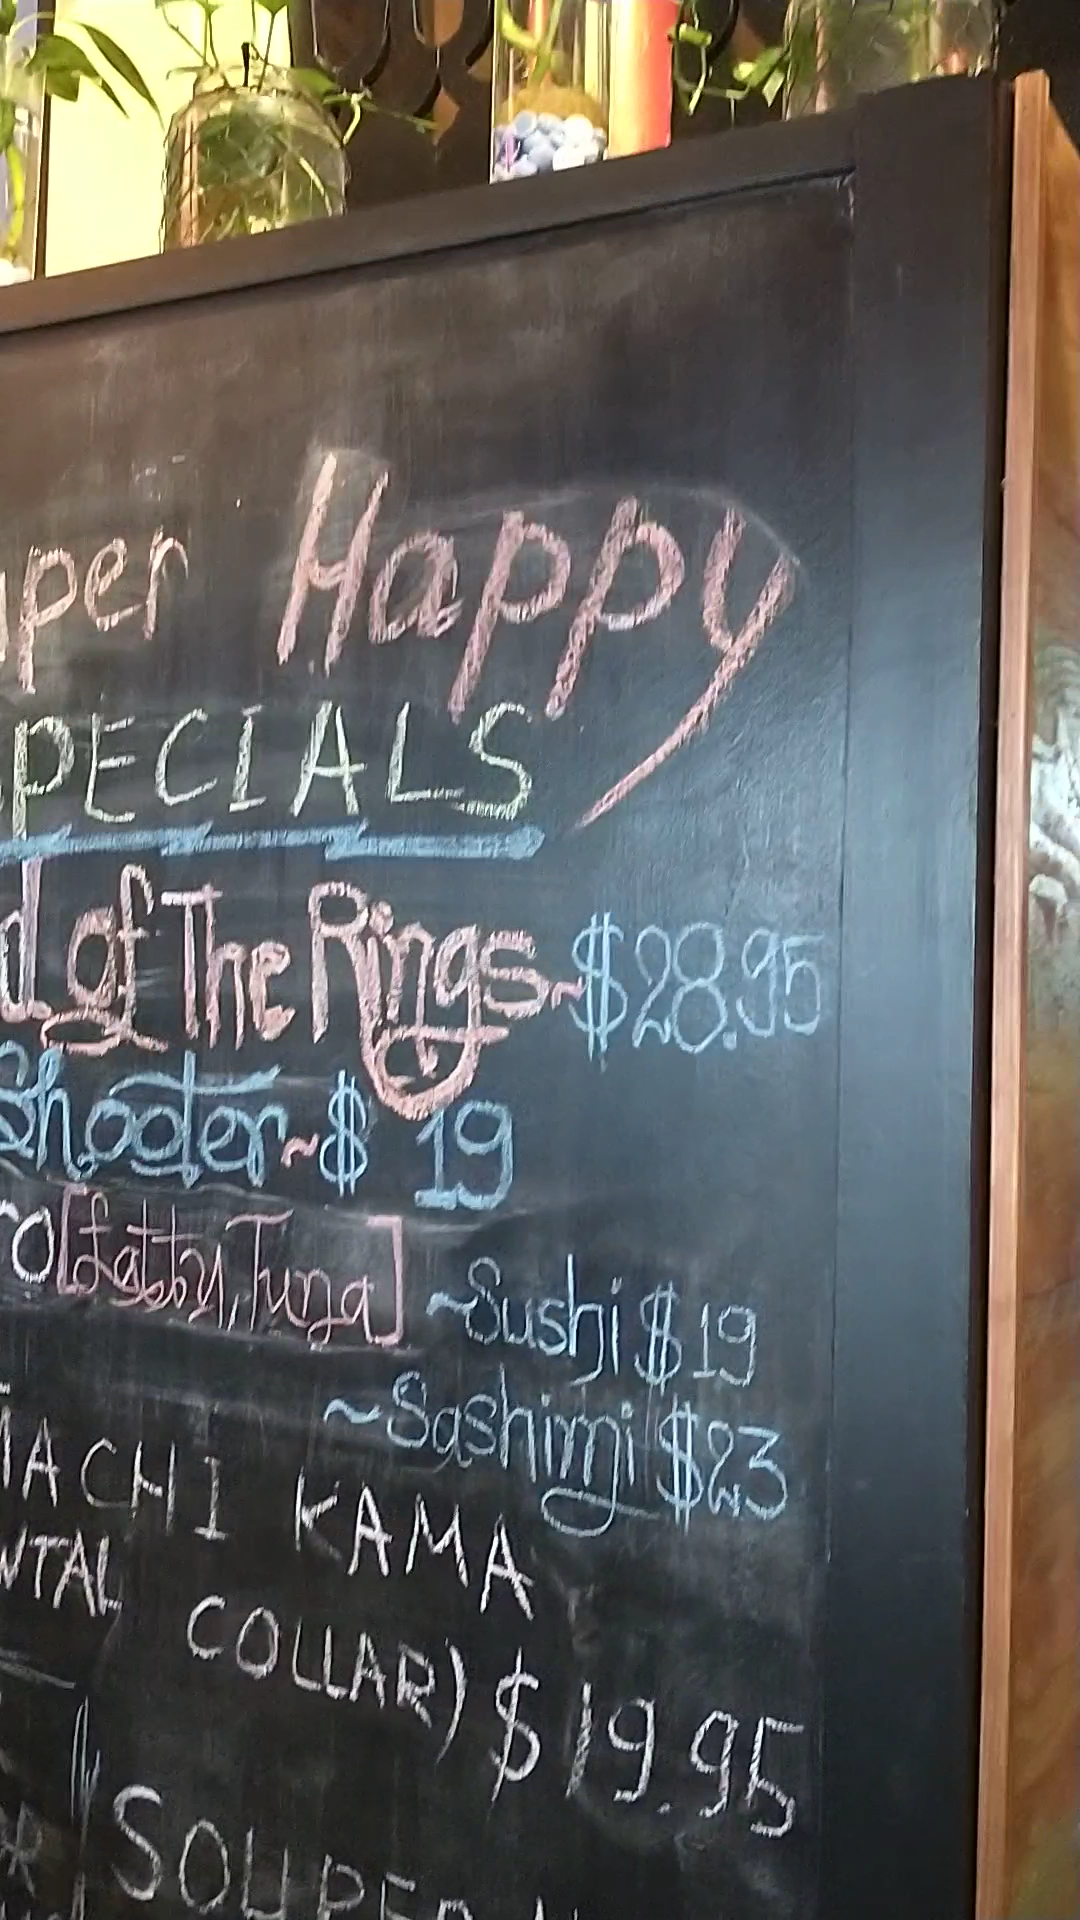 uper Happy
SPECIALS
d of The Rings ~ $28.95
Shooter ~ $ 19
ro [fatty Tuna] ~ Sushi $19
~ Sashimi $23
MACHI KAMA
NTAL COLLAR) $19.95
SOUPER